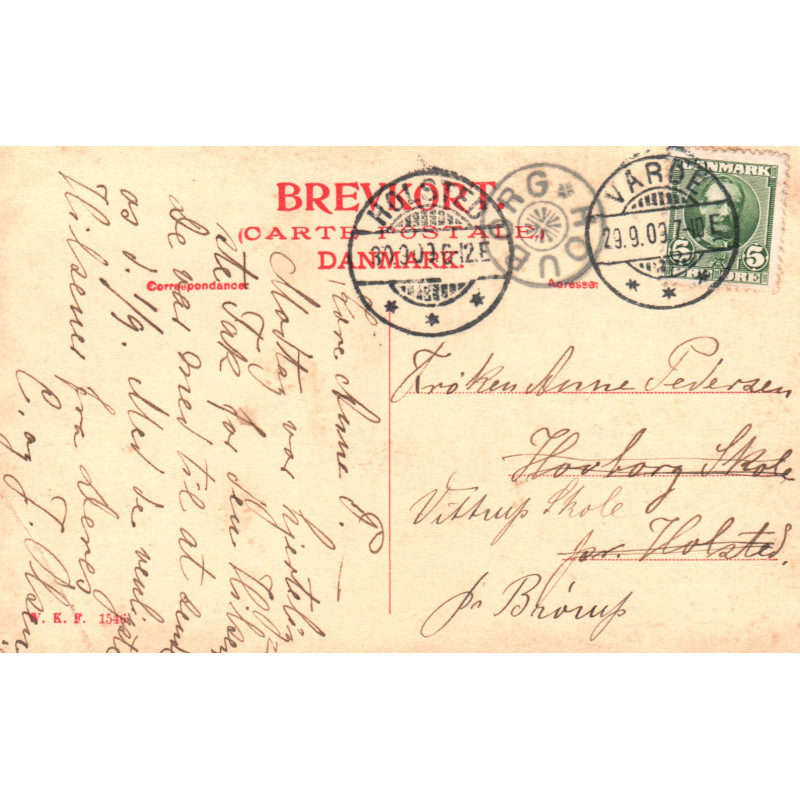 BREVKORT.
(CARTE POSTALE)
DANMARK.
Correspondance:
Adresse:
HOLSTED
30.9.09.6-12.E
HOUBORG
VARDE
29.9.09.7-10E
DANMARK
5 5
ØRE
Kære Anne P. —
Modtag vor hjertelig
ste Tak for den Hilsen
De var med til at sende
os d. 1/9. Med de venligste
Hilsener fra Deres
C. og J. Olsen
Frøken Anne Pedersen
Hovborg Skole
Vittrup Skole
pr. Holsted.
pr Brørup
V. K. F. 154